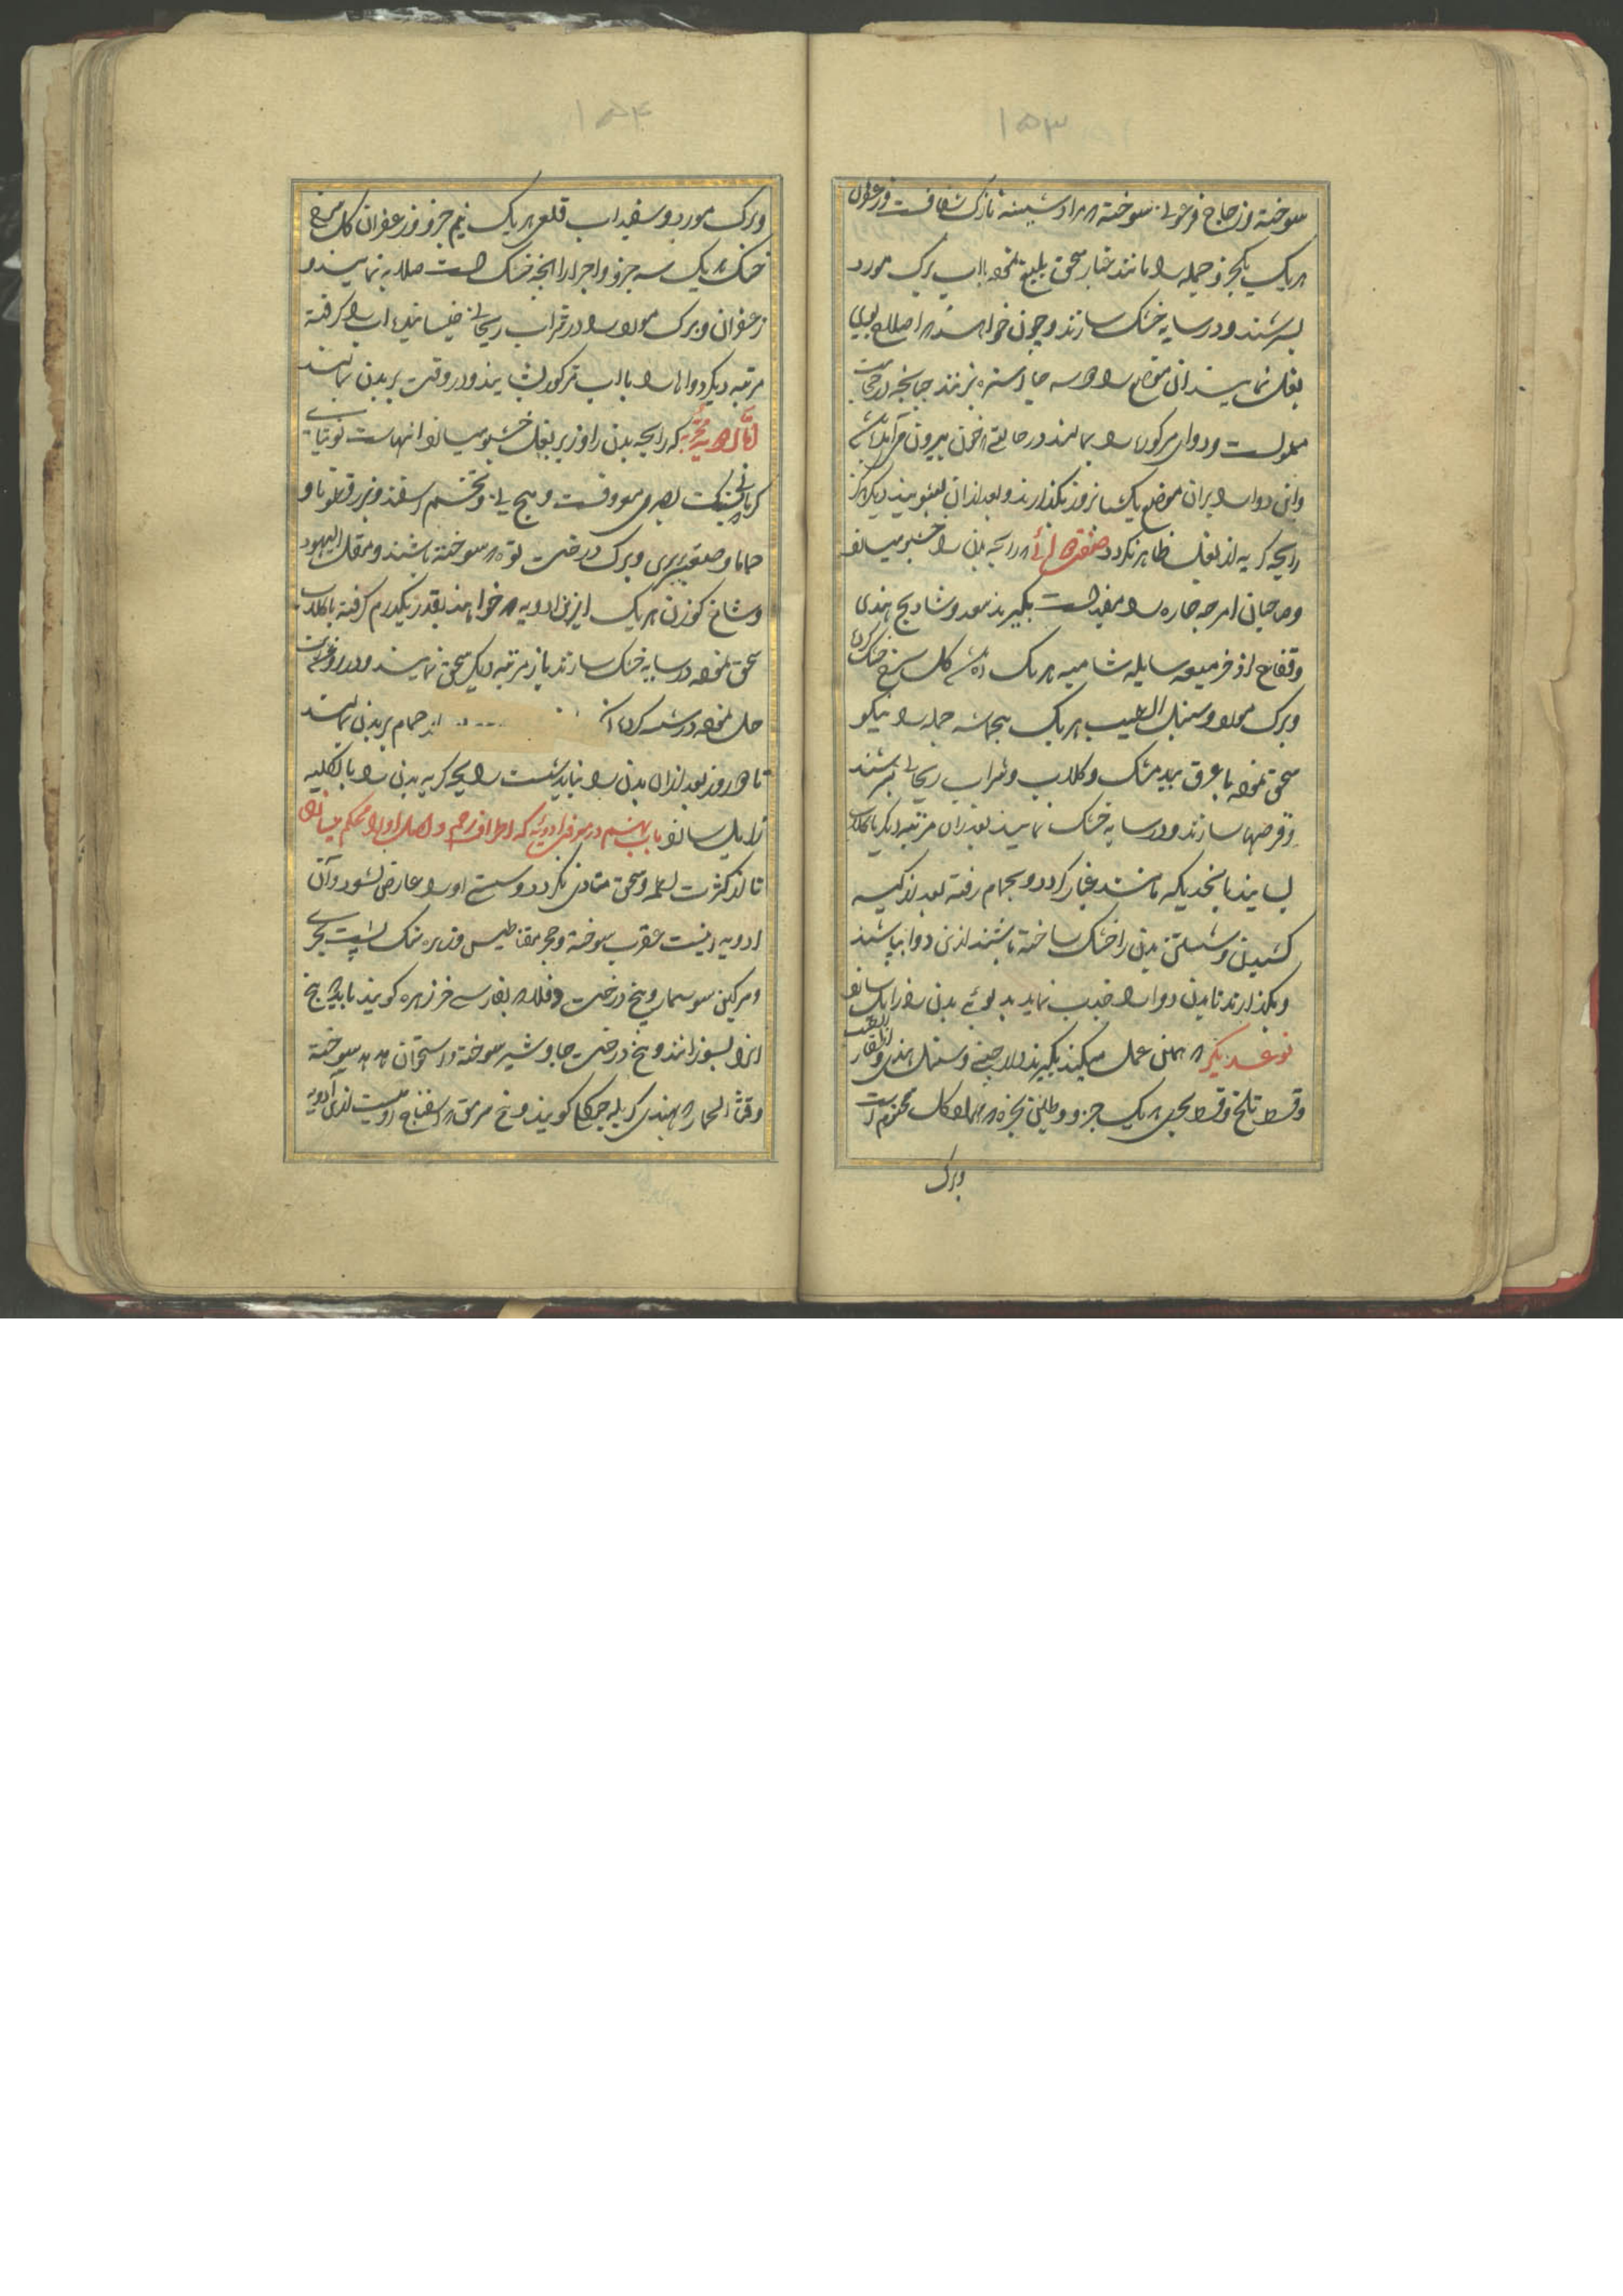 ۱۵۳
سوخته و زجاج فرعونی سوخته که مراد شیشه نازک شفافست و زعفران
هر یک یکجزو جمله را مانند غبار سحق بلیغ نموده باب برک مورد
بسرشند و در سایه خشک سازند و چون خواهند که اصلاح بوی
بغل نمایند ان موضع را دو سه جا استره بزنند چنانچه در حجامت
معمولست و دوای مذکور را بمالند در حالتی که خون بیرون می آمده باشد
و این دوا را بران موضع یک شبانروز بگذارند و بعد از ان بشویند دیگر هرگز
رایحه کریه از بغل ظاهر نگردد صفت دوائی که رایحه بدن را خوشبو میسازد
و صاحبان امزجه حاره را مفید است بگیرند سعد و شادنج هندی
و فقاح اذخر میعه سایله شامیه هر یک ده ماشه کل سرخ خشک کرده
و برک مورد و سنبل الطیب هر یک پنجماشه جمله را نیکو
سحق نموده با عرق بید مشک و کلاب و شراب ریحانی بسرشند
و قرصها سازند و در سایه خشک نمایند بعد از ان مرتبه دیگر با کلاب
بسایند تا بحدیکه مانند غبار کردد و بحمام رفته بعد از کیسه
کشیدن و شستن بدن را خشک ساخته باشند ازین دوا بپاشند
و بگذارند تا بدن دوا را جذب نماید بدبوئی بدن را زایل سازد
نوعدیگر که همین عمل میکند بگیرند دارچینی و سنبل هندی و اظفار الطیب
و قسط تلخ و قسط بحری هر یک جزو و طین بحیره که همان کل مختوم است
وبرک
۱۵۴
وبرک مورد و سفیداب قلعی هر یک نیم جزو و زعفران کل سرخ
خشک هر یک سه جزو و اجزا را انچه خشک است صلایه نمایند و
زعفران و برک مورد را در شراب ریحانی خیسانیده اب را کرفته
مرتبه دیگر دواها را با اب مذکور بسایند و در وقت بر بدن بمالند
اما ادویه مجربه که رایحه بدن را و زیر بغل خوشبو میسازد اینهاست توتیای
کرمانی پشت بصری سوودست و سج یی و تخم اسفند و بزرقطونا و
حماما و صعتر بری و برک درخت توت که سوخته باشند و مقل الیهود
و شاخ کوزن هر یک ازین ادویه که خواهند بقدر یکدرم کرفته با کلاب
سحق نموده در سایه خشک سازند باز مرتبه دیگر سحق نمایند و در روغن زیت
حل نموده در شیشه کرده ... از حمام بر بدن بمالند
تا دو روز بعد از ان بدن را نباید شست رایحه کریه بدن را بالکلیه
زایل سازد باب بهشتم در معرفت ادویه که اطراف رحم و اصل او را محکم میسازد
تا از کثرت لمس و سحق متاذی نکردد و سستی او را عارض نشود و آن
ادویه اینست عقرب سوخته و حجر مقناطیس و زبره نمک پشت بحری
و سرکین سوسمار و بیخ درخت دفلا که بفارسی خرزهره کویند باید که بیخ
انرا بسوزانند و بیخ درخت جاوشیر سوخته و استخوان هدهد سوخته
و قثاء الحمار که بهندی کریله جنکلی کویند و بیخ سرمق که اسفناج رومیست ازین ادویه